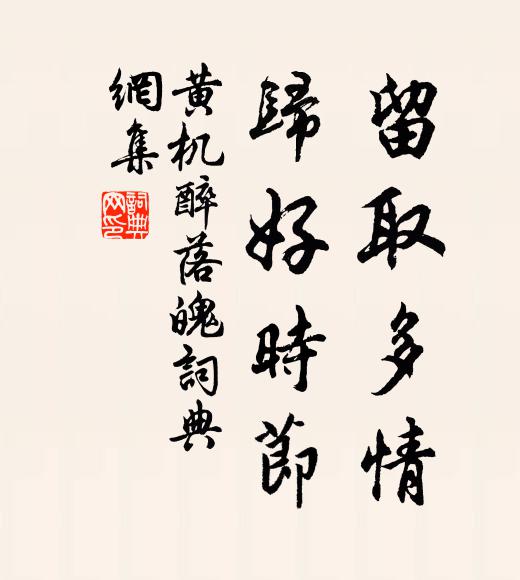 留取多情
歸好時節
黄机醉落魄詞典
網集
詞典
网印